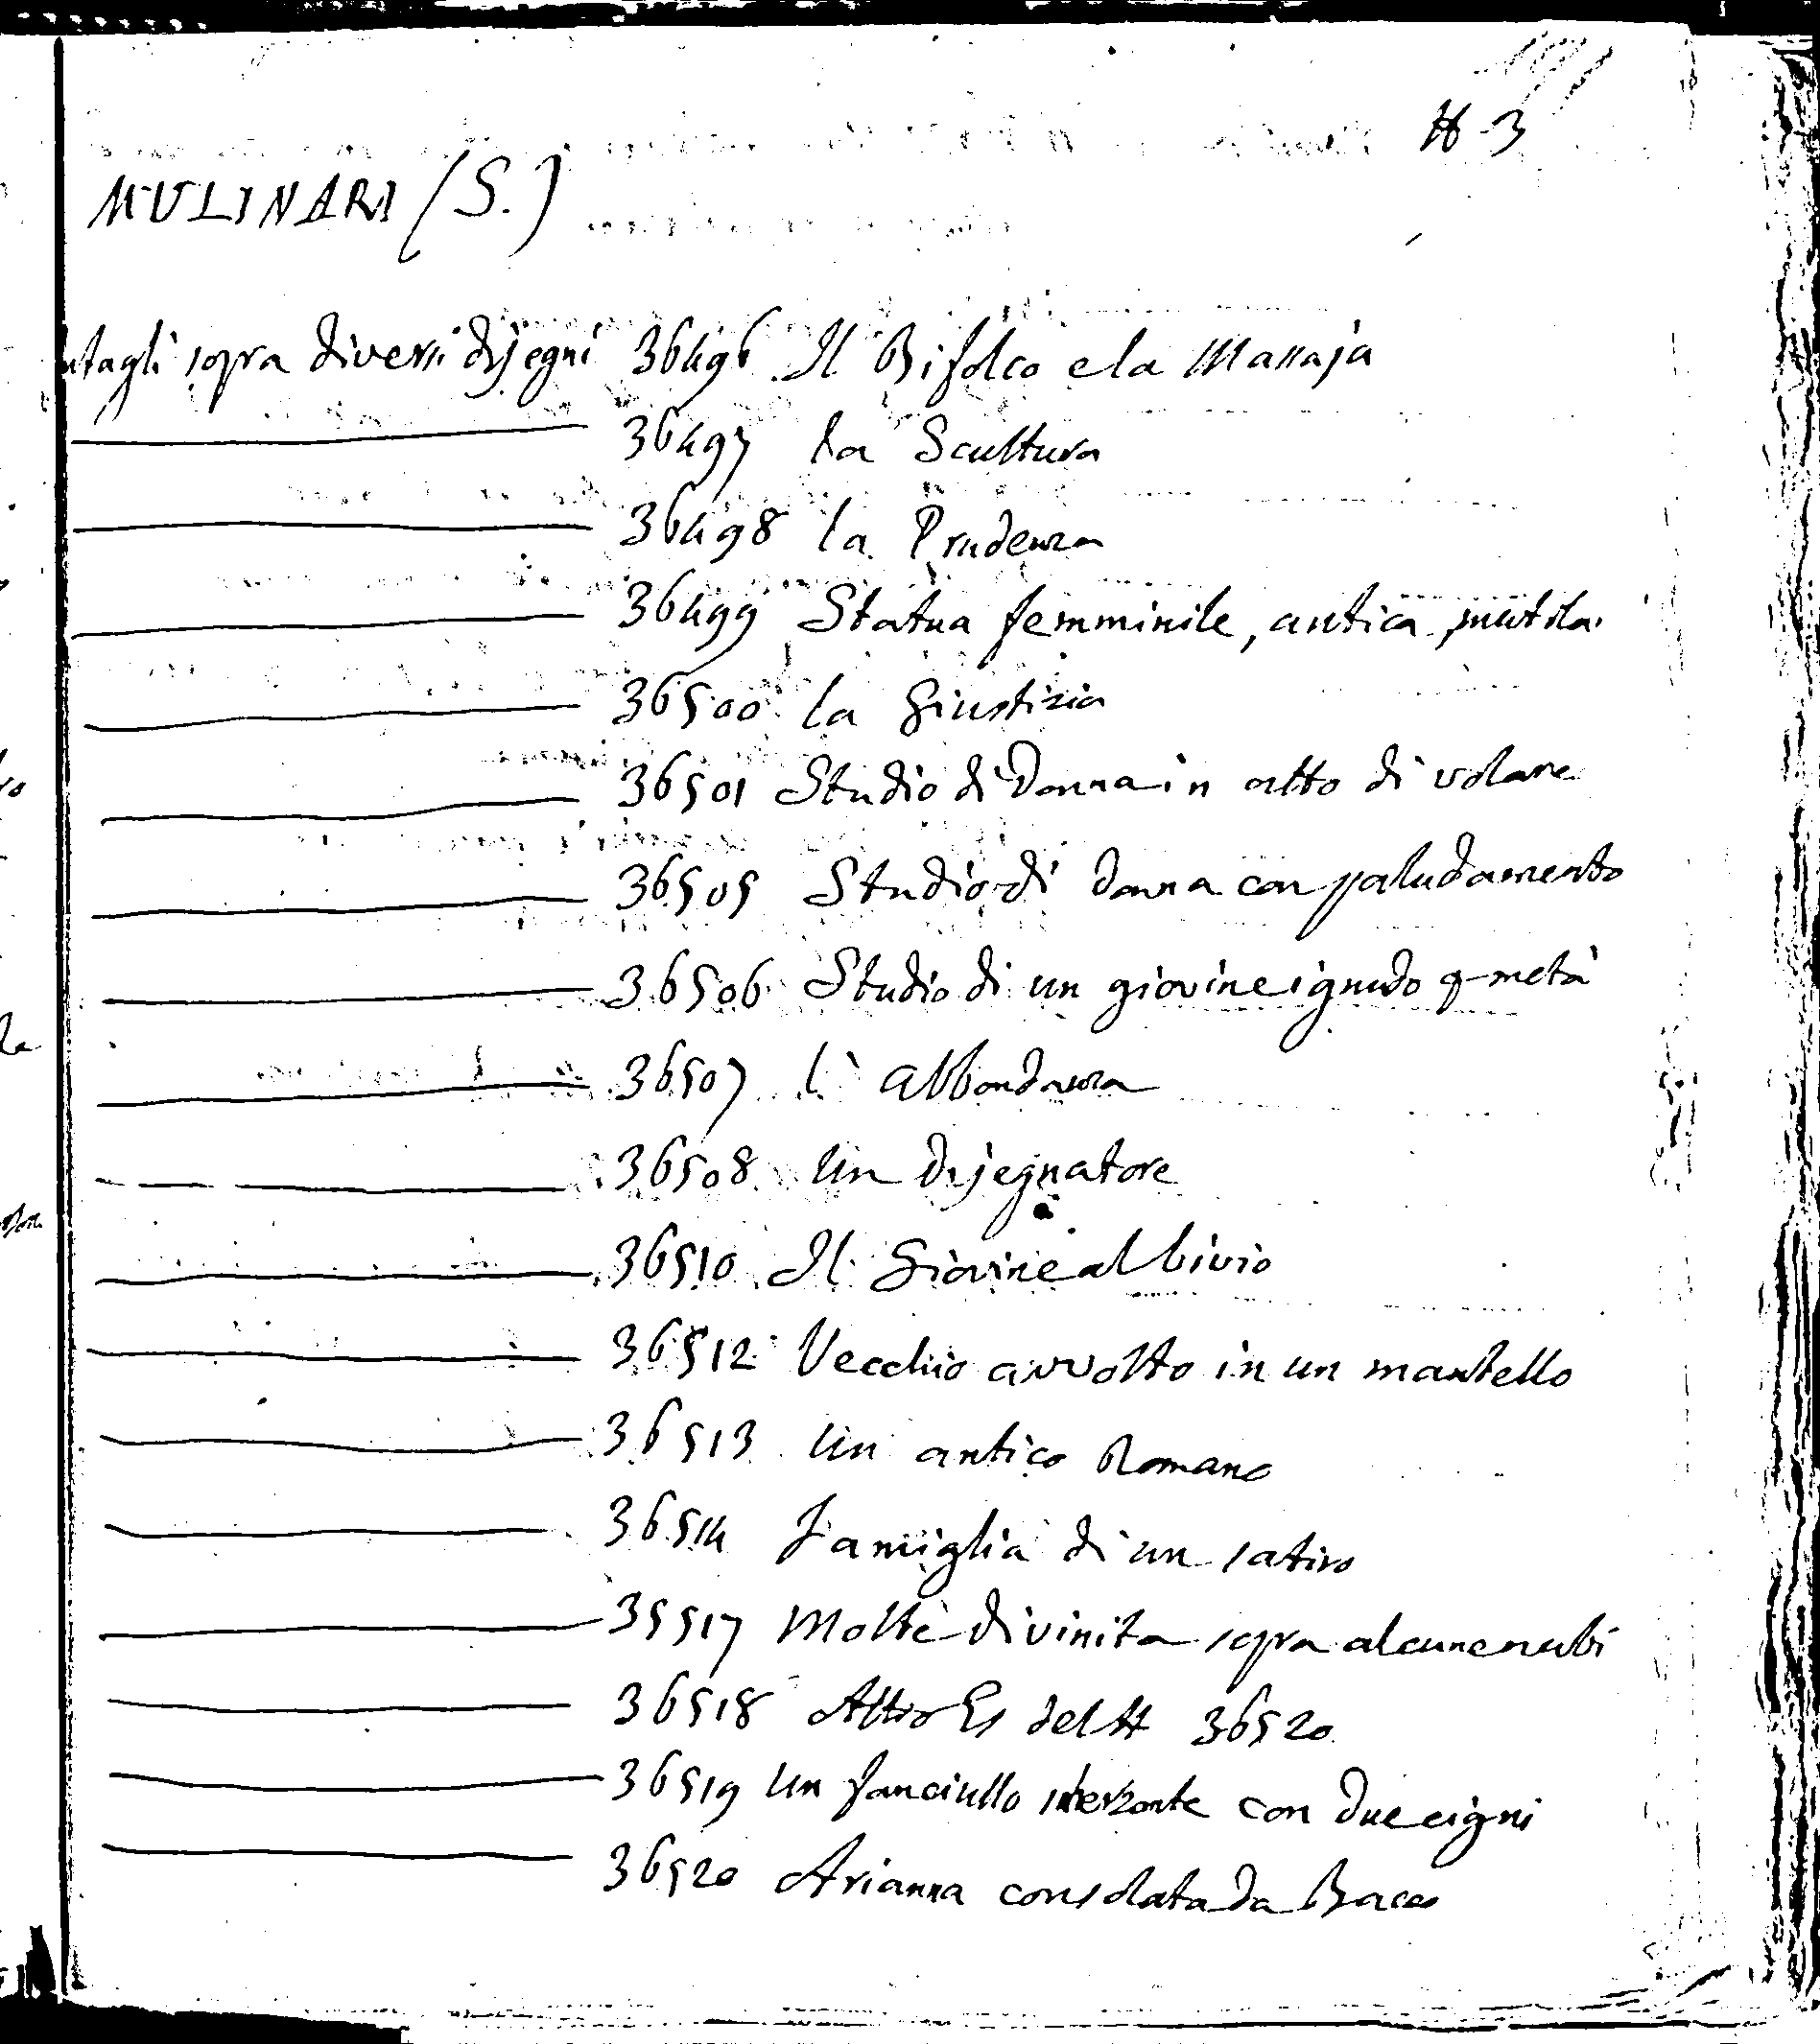 H 3
MULINARI (S.)
Intagli sopra diversi disegni 36496 Il Bifolco e la Massaja
36497 la Scultura
36498 la Prudenza
36499 Statua femminile, antica, mutila
36500 la Giustizia
36501 Studio di Donna in atto di volare
36505 Studio di donna con paludamento
36506 Studio di un giovine ignudo metà
36507 l'abbondanza
36508 Un disegnatore
36510 Il Giovine al bivio
36512 Vecchio avvolto in un mantello
36513 Un antico Romano
36514 Famiglia di un satiro
35517 Molte divinita sopra alcune nubi
36518 Altro Es del H 36520
36519 Un fanciullo scherzante con due cigni
36520 Arianna consolata da Bacco